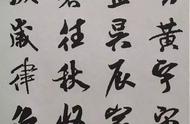 黄宇宙
昃辰宿
暑往秋收
歲律